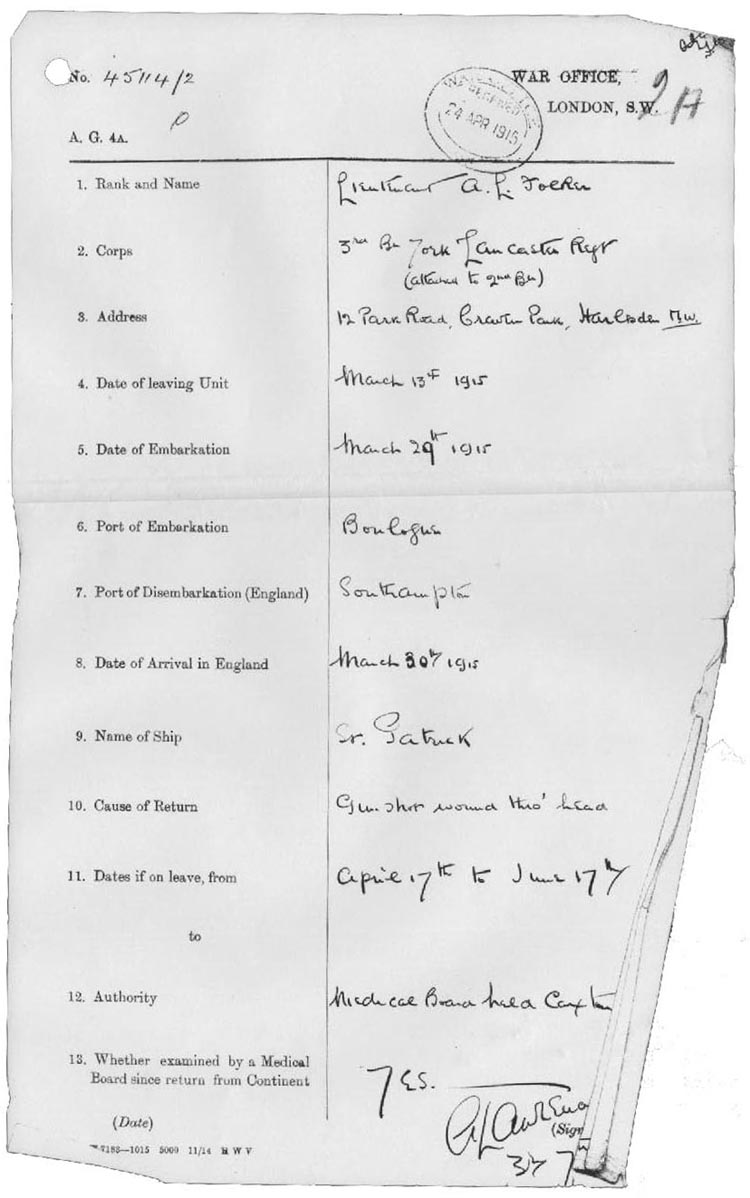 No. 45114/2
WAR OFFICE,
LONDON, S.W.
2A
RECEIVED
24 APR 1915
A. G. 4A.
1. Rank and Name Lieutenant A. L.
2. Corps 3rd Bn York Lancaster Regt
(attached to 2nd Bn)
3. Address 12 Park Road, Craven Park, Harlesden N.W.
4. Date of leaving Unit March 13th 1915
5. Date of Embarkation March 29th 1915
6. Port of Embarkation Boulogne
7. Port of Disembarkation (England) Southampton
8. Date of Arrival in England March 30th 1915
9. Name of Ship St. Patrick
10. Cause of Return Gun shot wound thro' head
11. Dates if on leave, from April 17th to June 17th
to
12. Authority Medical Board held Caxton
13. Whether examined by a Medical
Board since return from Continent YES.
(Sign
(Date)
7183—1015 5000 11/14 H W V